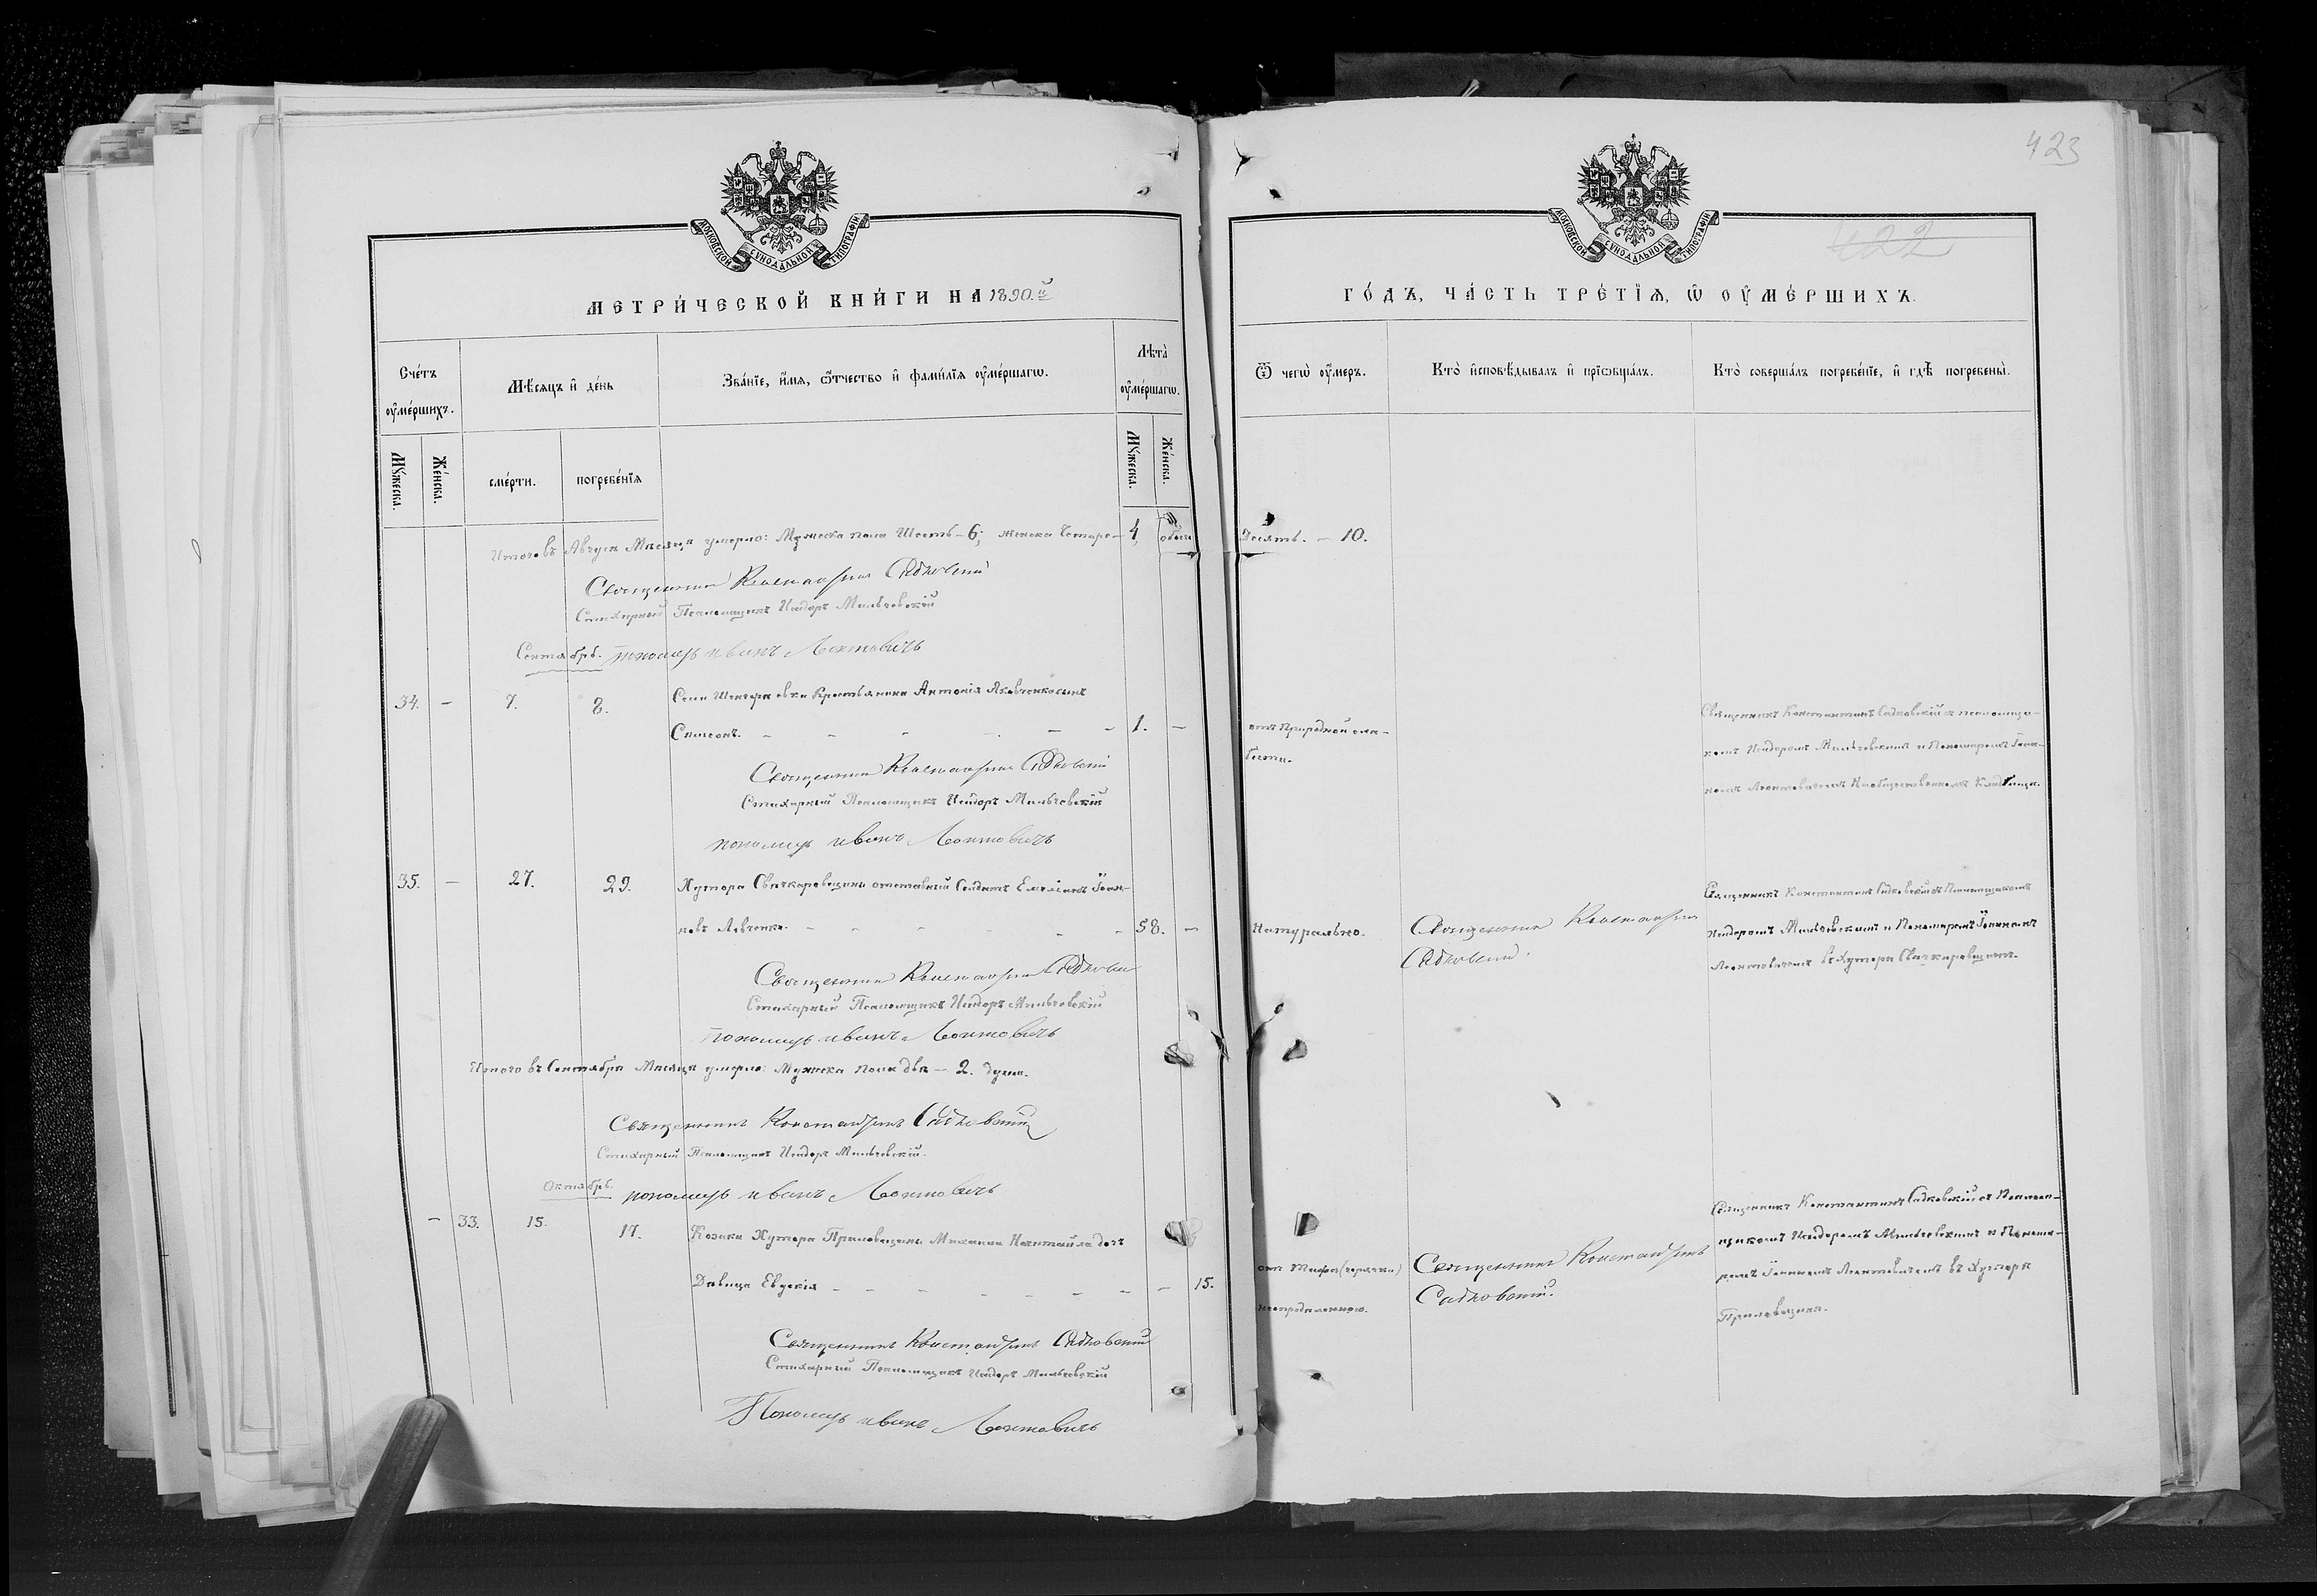 423
422
МОСКОВСКОЙ СѴНОДАЛЬНОЙ ТИПОГРАФІИ
МОСКОВСКОЙ СѴНОДАЛЬНОЙ ТИПОГРАФІИ
МЕТРИ́ЧЕСКОЙ КНИ́ГИ НА 1890.й
ГО́ДЪ, ЧА́СТЬ ТРЕ́ТЇѦ, Ѡ ОУМЕ́РШИХЪ.
Сче́тъ оуме́ршихъ.
Мѣ́сѧцъ и де́нь
Зва́нїе, и́мѧ, ѻ́тчество и фами́лїѧ оуме́ршагѡ.
Лѣта̀ оуме́ршагѡ.
Ѿ чегѡ̀ оу́меръ.
Кто̀ и҆сповѣ́дывалъ и҆ прїѡбща́лъ.
Кто̀ соверша́лъ погребе́нїе, и҆ гдѣ̀ погребены̀.
Мꙋ́жеска.
Же́нска.
сме́рти.
погребе́нїѧ
Мꙋ́жеска.
Же́нска.
Итого въ Августѣ Мѣсяцѣ умерло: Мужеска пола Шесть – 6; женска Четыре – 4, обоего
Десять. – 10.
Священникъ Константинъ Садковскій
Стихарный Псаломщикъ Исидоръ Мильчевскій
Сентябрь. пономарь иванъ Леонтовичъ
34. – 7. 8.
Крестьянина Антонія Яковченка сынъ
Симеонъ. – 1. –
отъ Природной сла-
бости.
Священникъ Константинъ Садковскій съ псаломщи-
комъ Исидоромъ Мильчевскимъ и Пономаремъ Іоан-
номъ Леонтовичемъ На общественномъ Кладбищѣ.
Священникъ Константинъ Садковскій
Стихарный Псаломщикъ Исидоръ Мильчевскій
пономарь иванъ Леонтовичъ
35. – 27. 29.
Хутора Свѣчкаревщины отставный Солдатъ Емеліанъ Іоан-
новъ Левченко. – 58. –
Натурально.
Священникъ Константинъ
Садковскій.
Священникъ Константинъ Садковскій съ Псаломщикомъ
Исидоромъ Мильчевскимъ и Пономаремъ Іоанномъ
Леонтовичемъ въ Хуторѣ Свѣчкаревщинѣ.
Священникъ Константинъ Садковскій
Стихарный Псаломщикъ Исидоръ Мильчевскій
пономарь иванъ Леонтовичъ
Итого въ Сентябрѣ Мѣсяцѣ умерло: Мужеска пола двѣ – 2. души.
Священникъ Константинъ Садковскій
Стихарный Псаломщикъ Исидоръ Мильчевскій.
Октябрь. пономарь иванъ Леонтовичъ
– 33. 15. 17.
Козака Хутора Михаила дочь
Дѣвица Евдокія – – 15.
отъ Тифа (горячки)
Священникъ Константинъ
Садковскій.
Священникъ Константинъ Садковскій съ Псалом-
щикомъ Исидоромъ Мильчевскимъ и Понома-
ремъ Іоанномъ Леонтовичемъ въ Хуторѣ
Священникъ Константинъ Садковскій
Стихарный Псаломщикъ Исидоръ Мильчевскій
Пономарь иванъ Леонтовичъ